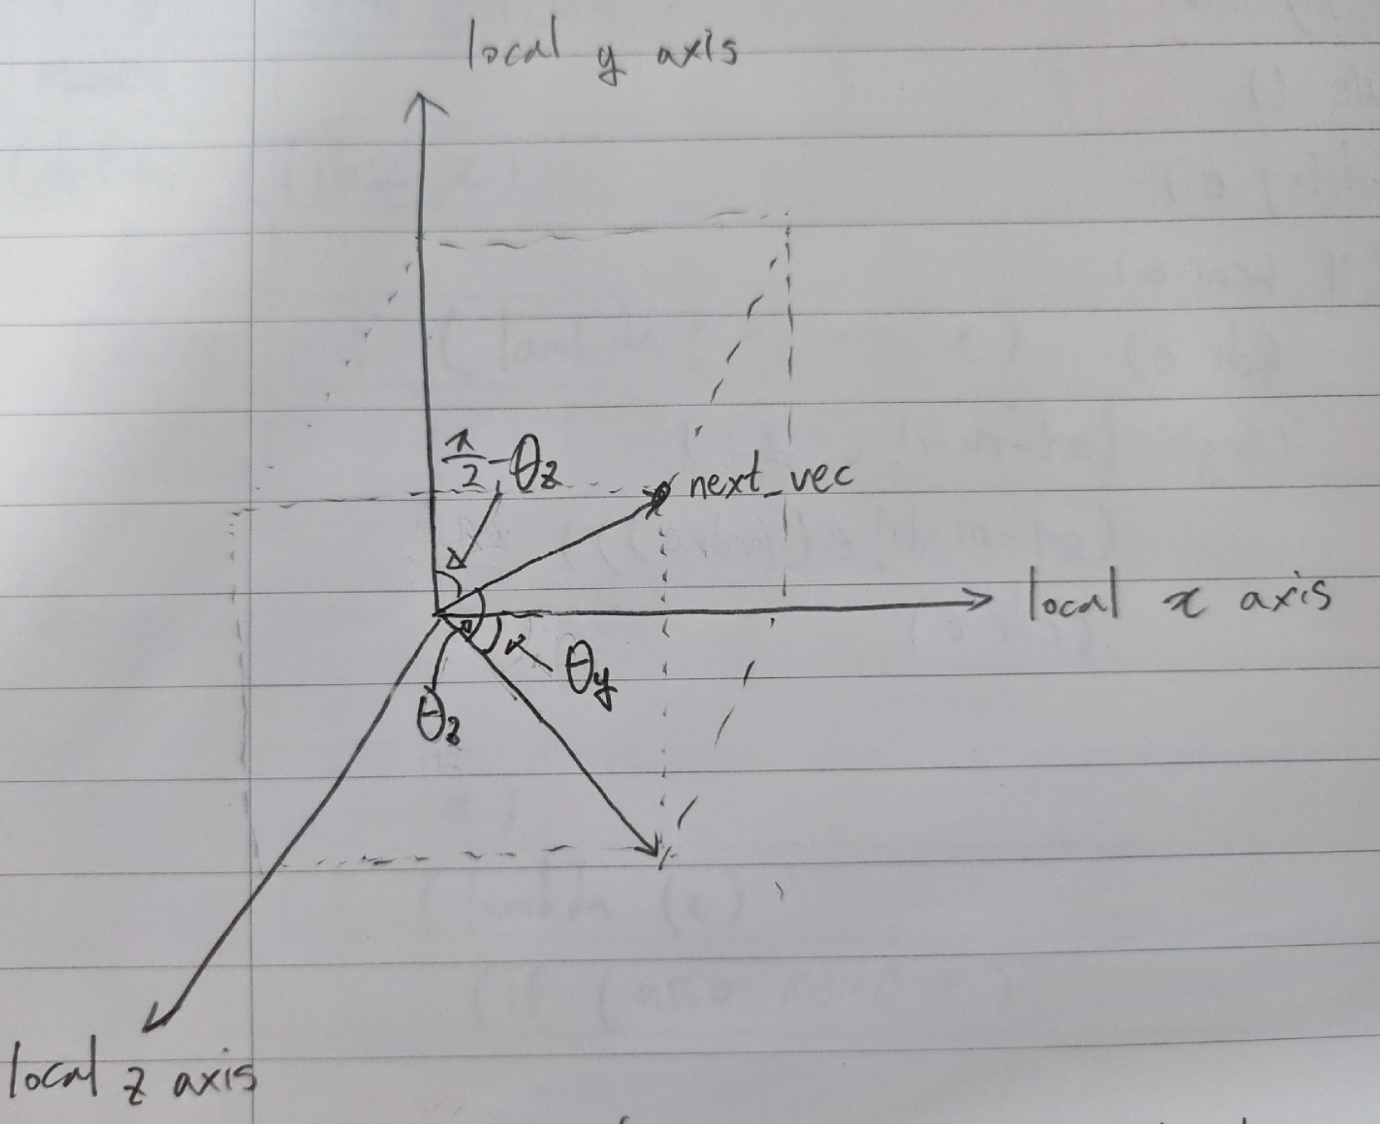 local y axis
π/2 - θz
next_vec
local x axis
θy
θz
local z axis